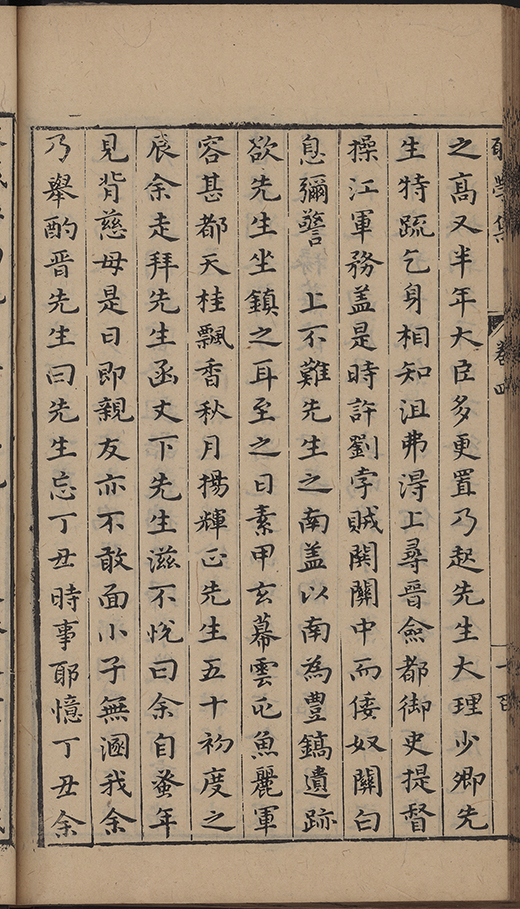 集
卷四
之高又半年大臣多更置乃起先生大理少卿先
生特疏乞身相知沮弗得上尋晉僉都御史提督
操江軍務蓋是時許劉孛賊鬨關中而倭奴關白
息彌警上不難先生之南蓋以南為豐鎬遺跡
欲先生坐鎮之耳至之日素甲玄幕雲屯魚麗軍
容甚都天桂飄香秋月揚輝正先生五十初度之
辰余走拜先生函丈下先生滋不悅曰余自蚤年
見背慈母是日即親友亦不敢面小子無溷我余
乃舉酌晉先生曰先生忘丁丑時事耶憶丁丑余